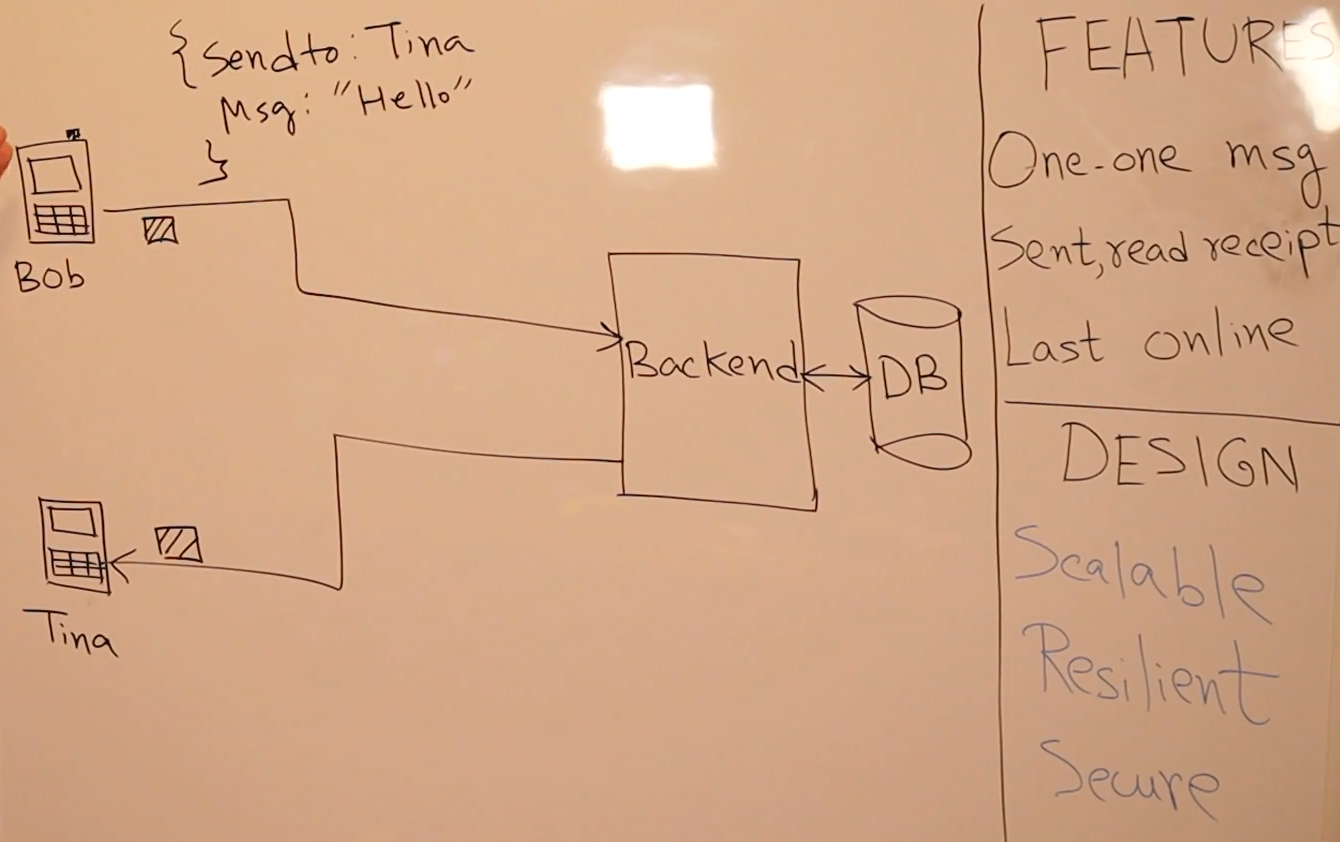 {Sendto: Tina
Msg: "Hello"
}
Bob
Backend
DB
Tina
FEATURES
One-one msg
Sent,read receipt
Last online
DESIGN
Scalable
Resilient
Secure